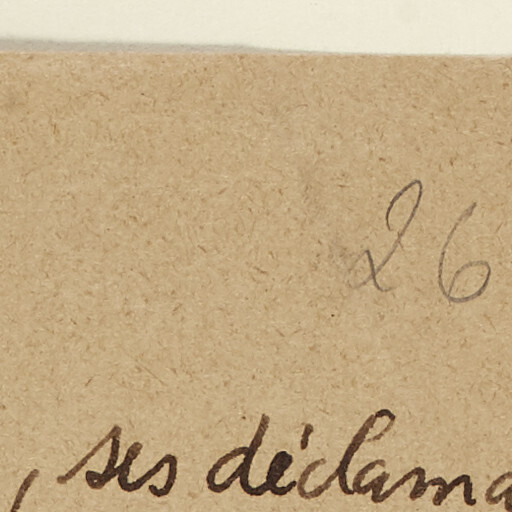 26
, ses déclama